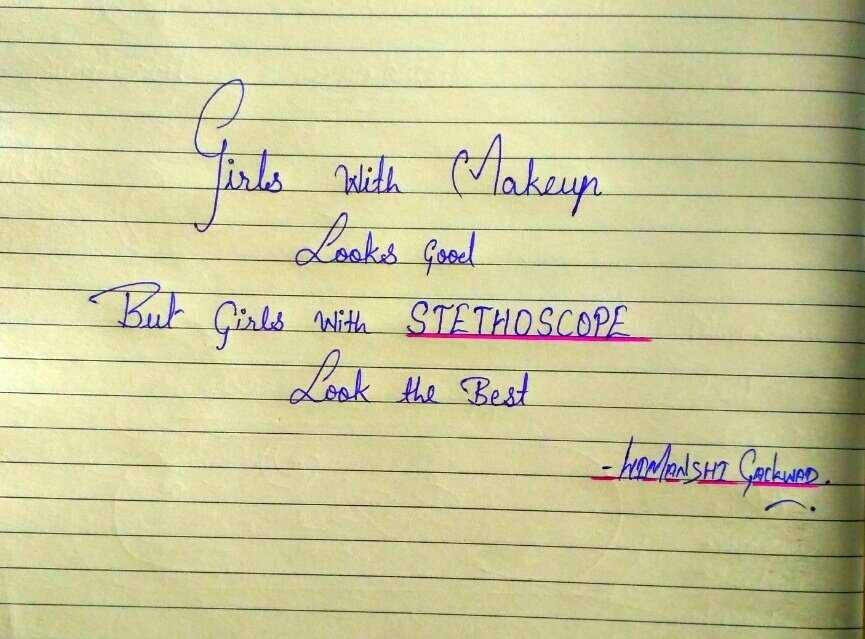 Girls With Makeup
Looks Good
But Girls With STETHOSCOPE
Look the Best
- HIMANSHI GACKWAD.